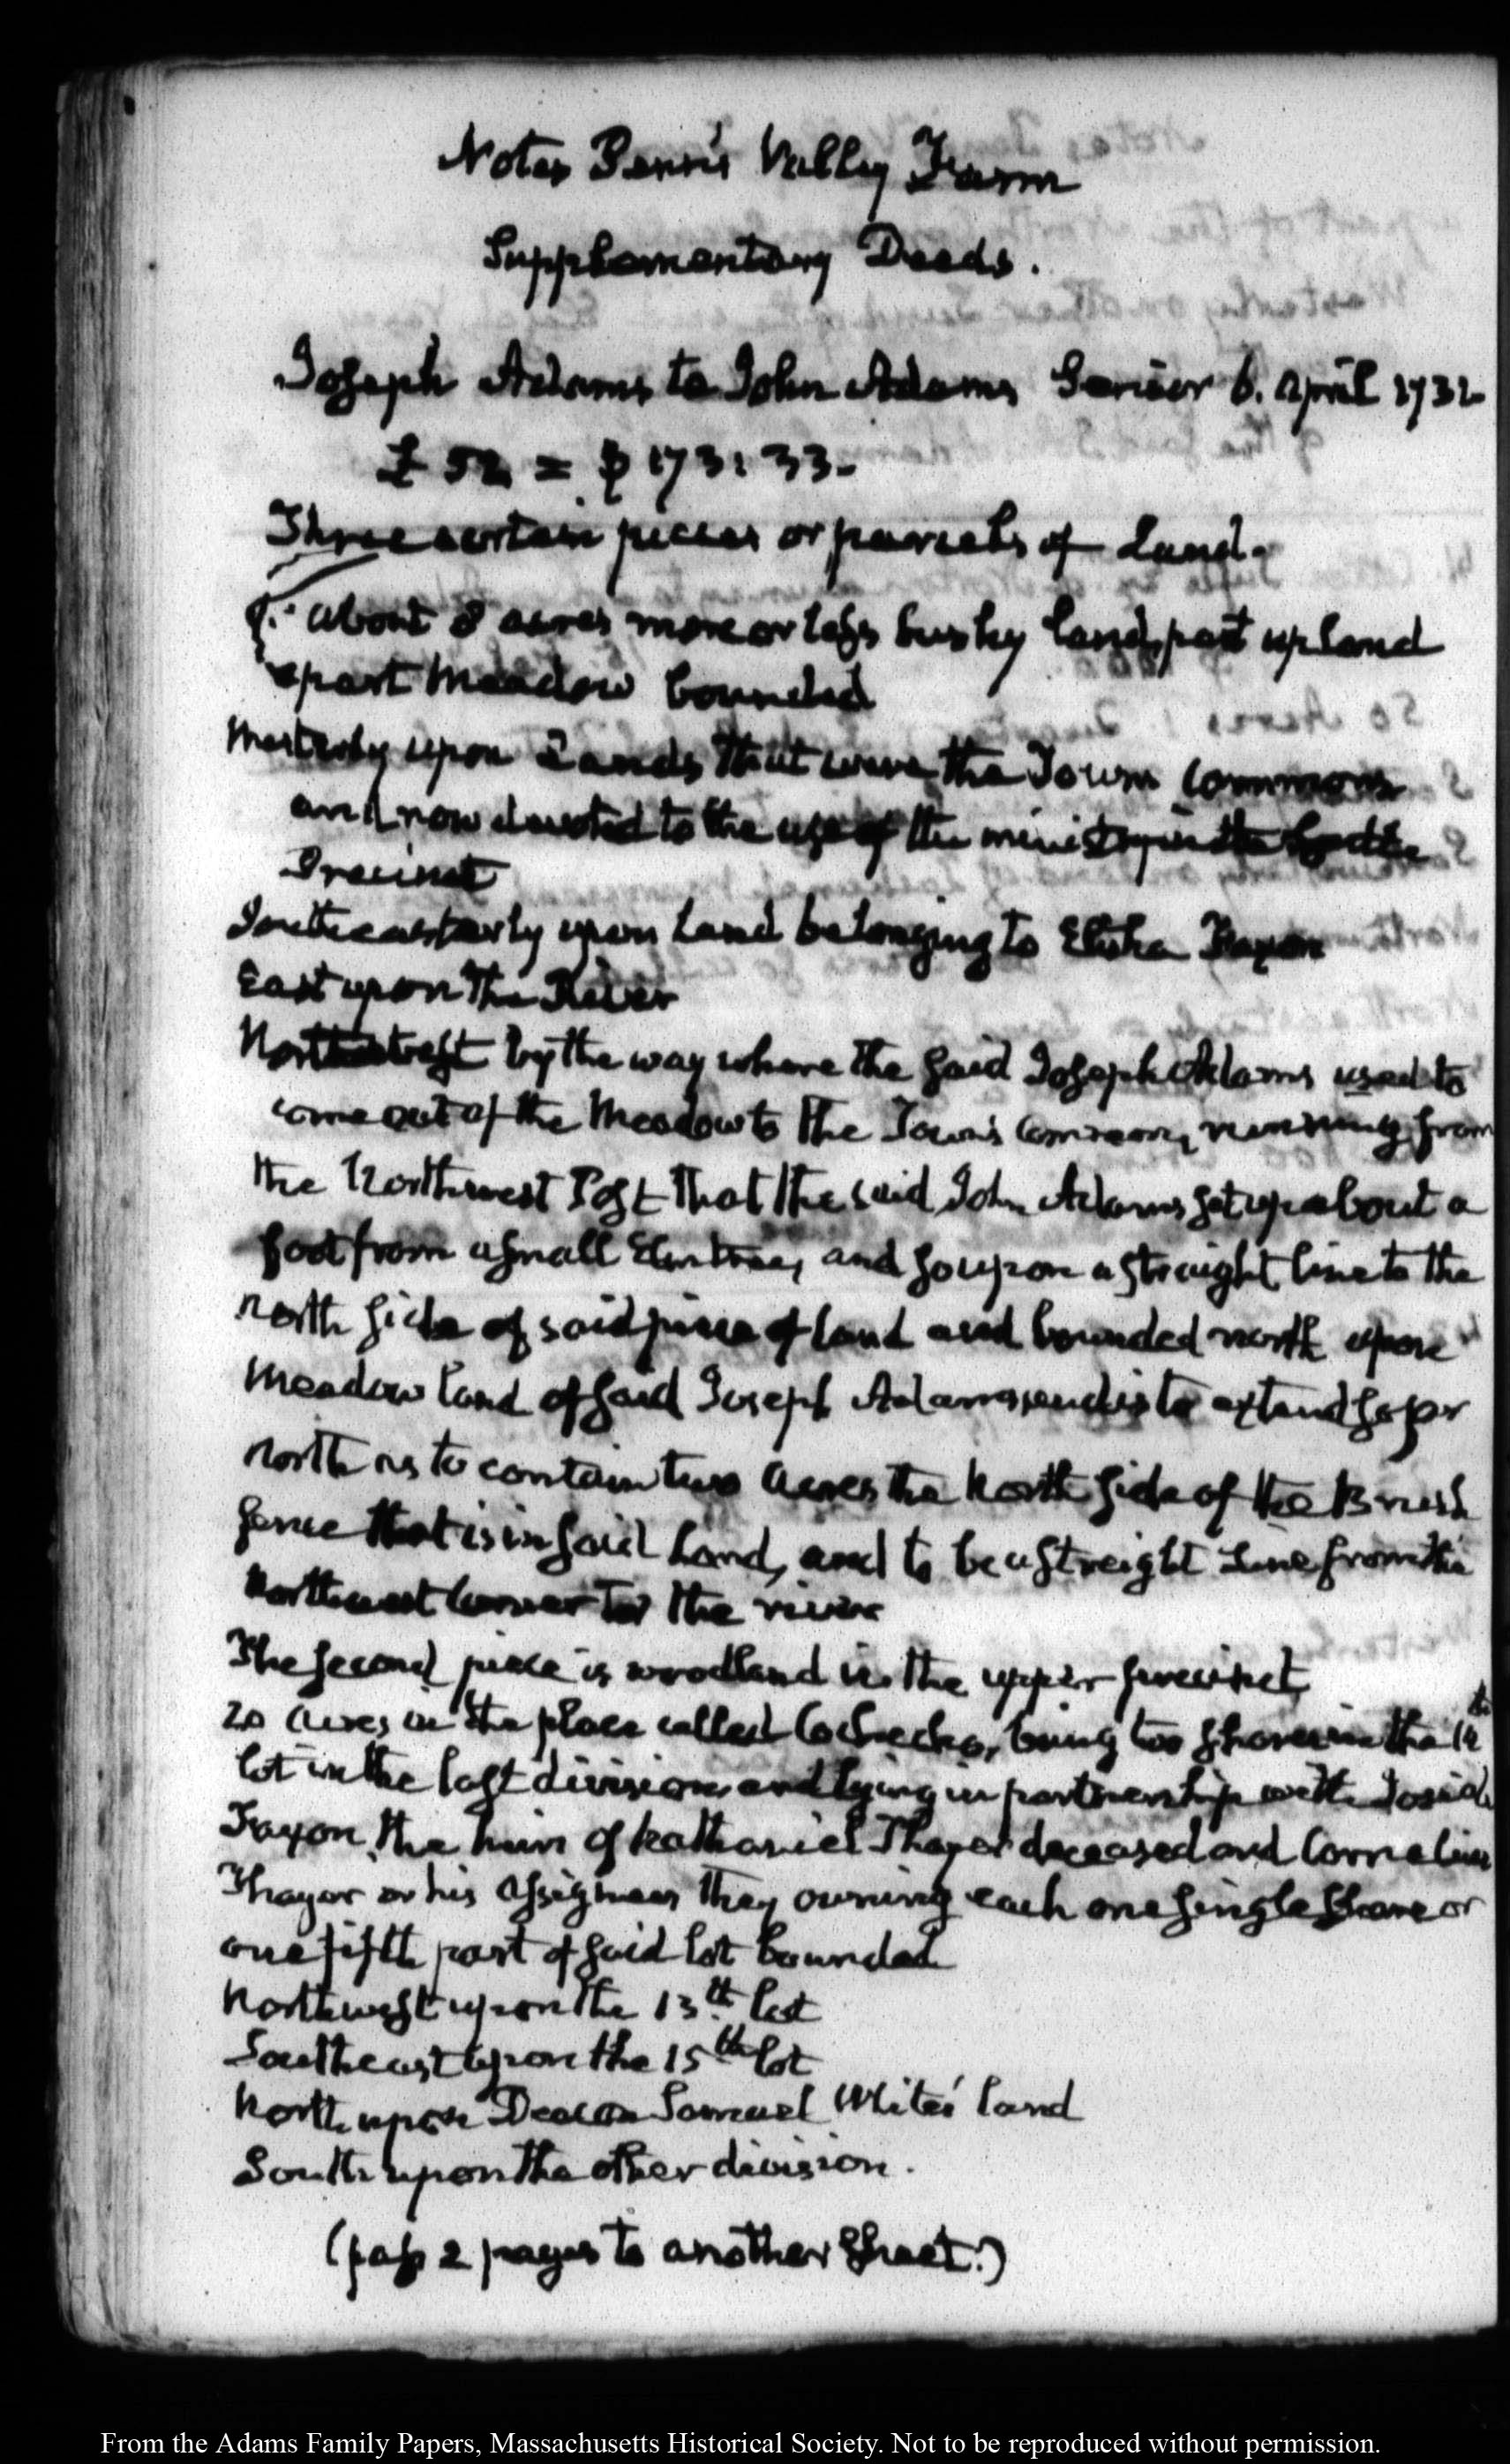 Notes Penn's Valley Farm
Supplementary Deeds.
Joseph Adams to John Adams Senior 6. April 1732
£ 52 = $ 173:33-
Three certain pieces or parcels of Land.
1. about 8 acres more or less bushy land, part upland
part Meadow bounded
Westerly upon Lands that were the Town Commons
and now devoted to the use of the ministry in the South
Precinct
Southeasterly upon Land belonging to Elisha Faxon
East upon the River
Northwest by the way where the said Joseph Adams used to
come out of the Meadow to the Town's Common, running from
the Northwest Post that the said John Adams set up about a
foot from a small Elm tree, and so upon a straight line to the
north side of said piece of land and bounded north upon
Meadow land of said Joseph Adams, and is to extend so far
north as to contain two acres the North side of the Brush
fence that is in said Land, and to be a streight Line from the
Northwest corner to the river
The second piece is woodland in the upper precinct
20 acres in the place called Cochecho, being two shares in the 14th
lot in the last division and lying in partnership with Josiah
Faxon, the heirs of Nathaniel Thayer deceased and Cornelius
Thayer or his Assignees they owning each one single Share or
one fifth part of said lot bounded
Northwest upon the 13th lot
Southeast upon the 15th lot
North upon Deacon Samuel White's land
South upon the other division.
(pass 2 pages to another Sheet.)
From the Adams Family Papers, Massachusetts Historical Society. Not to be reproduced without permission.